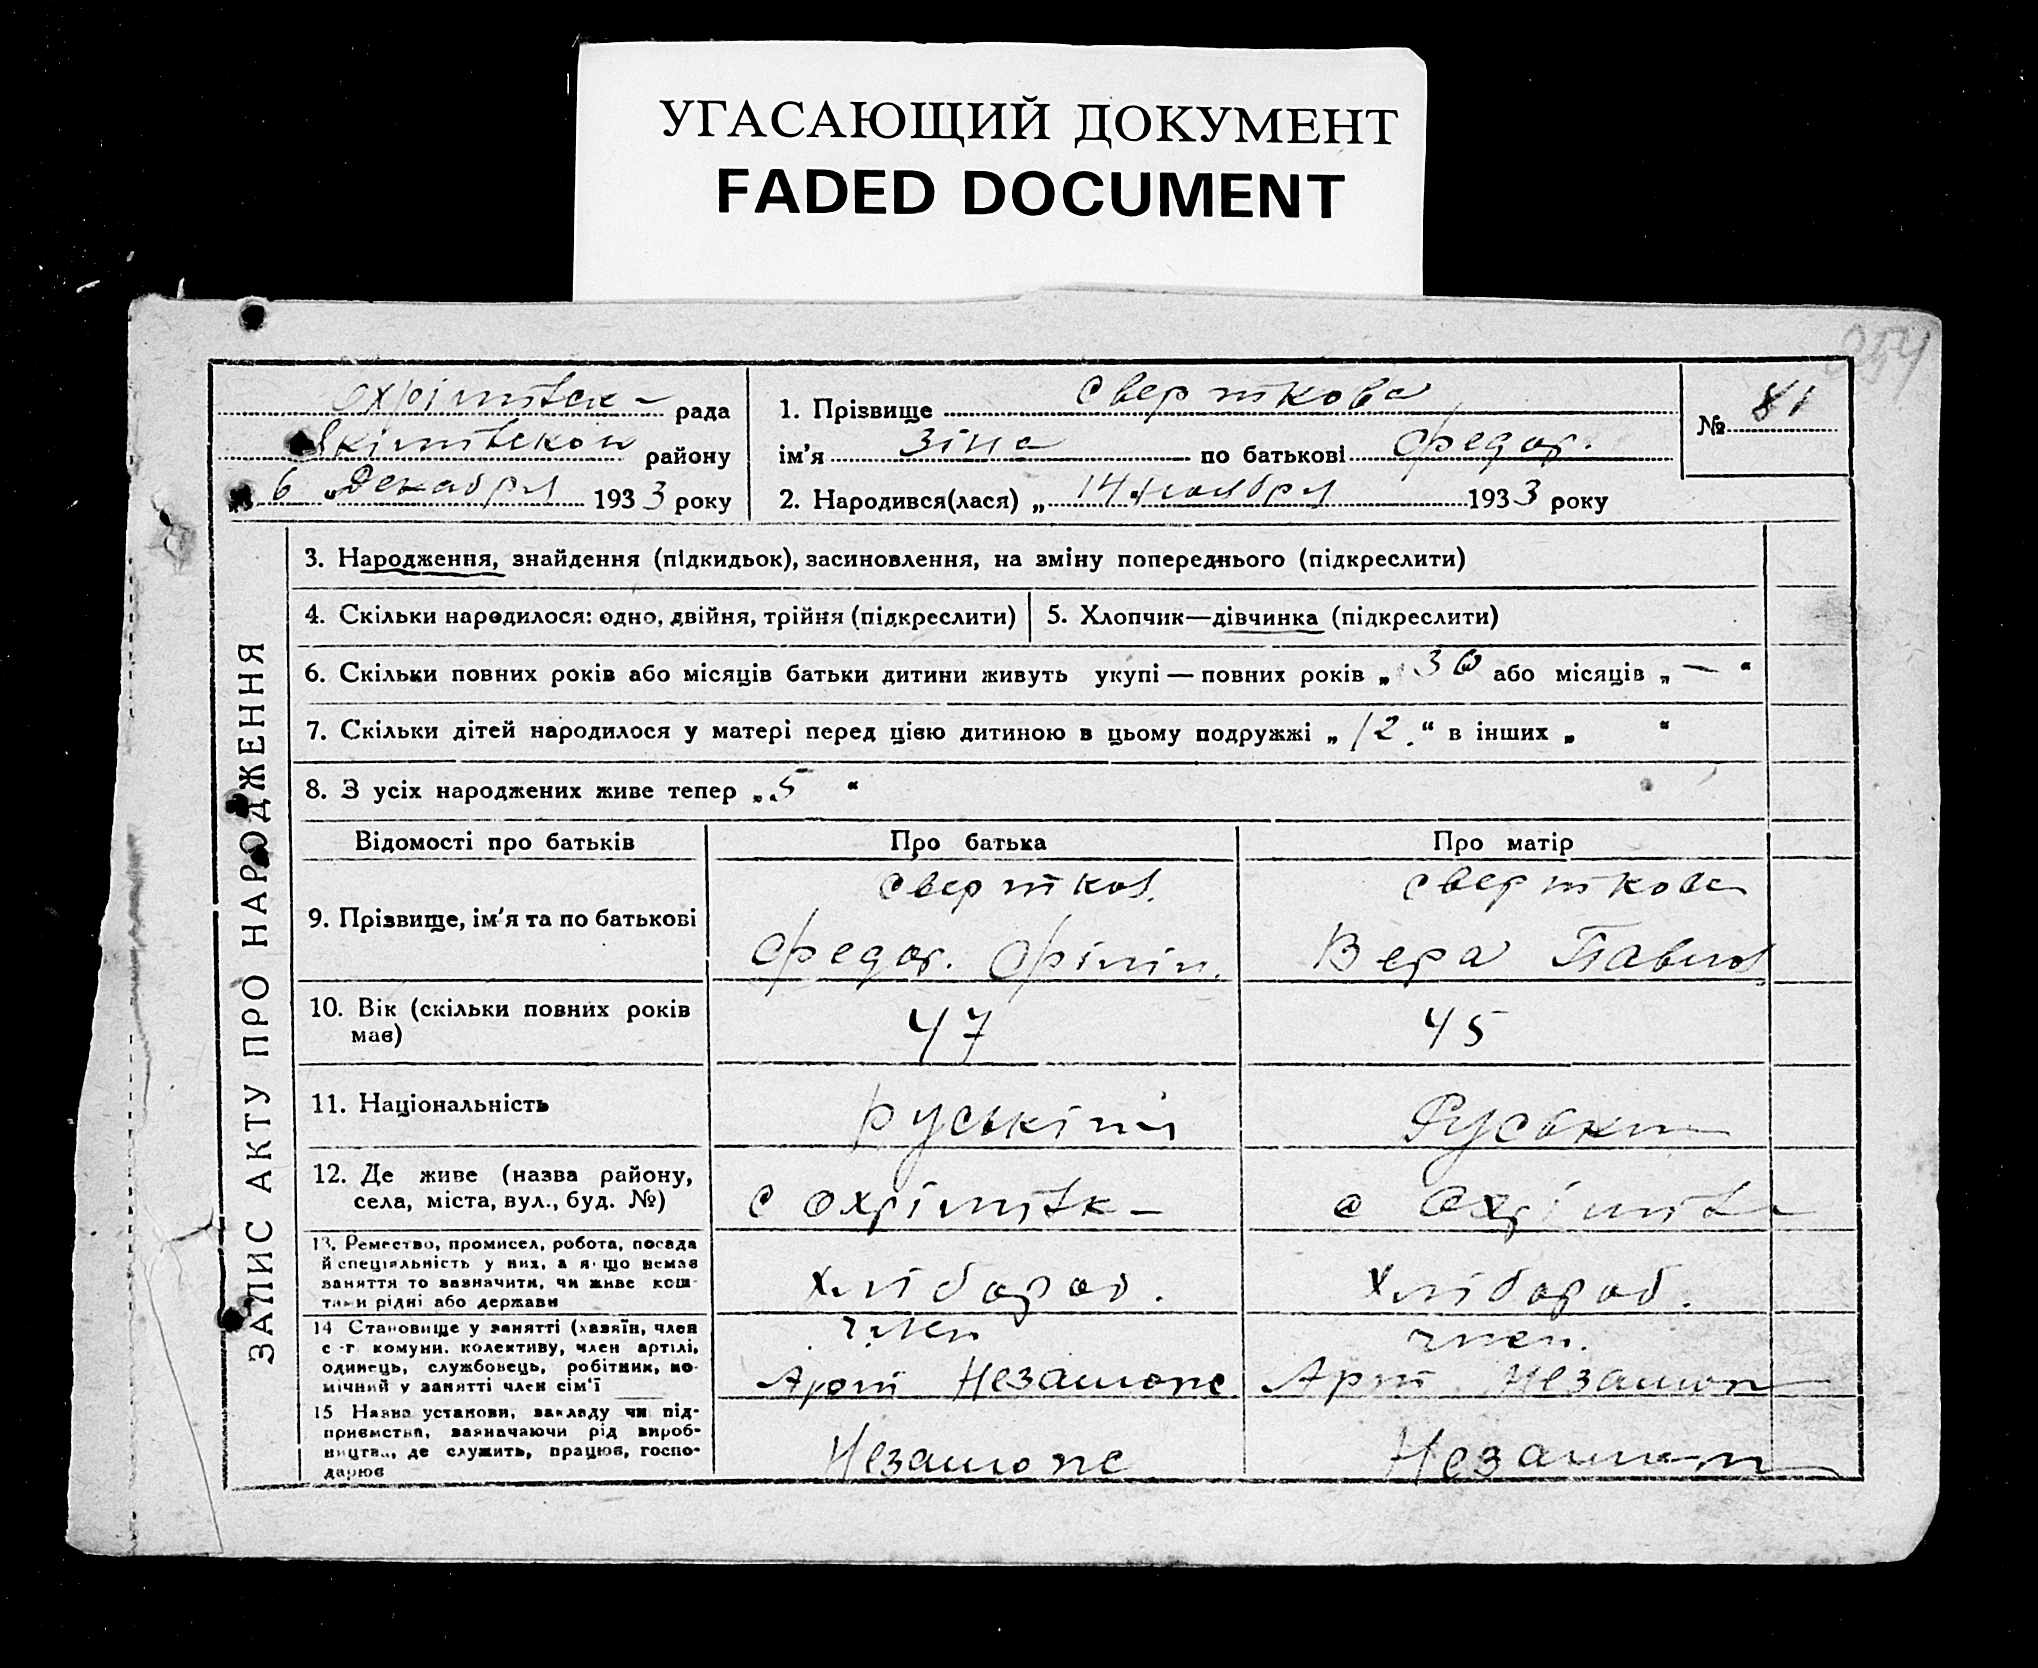 УГАСАЮЩИЙ ДОКУМЕНТ
FADED DOCUMENT
254
охрімовск рада
Якімовскои району
6 „Декабря 1933 року
1. Прізвище сверткова
ім'я Зіна по батькові Федор.
2. Народився(лася) „14 „ноября 1933 року
№ 81
ЗАПИС АКТУ ПРО НАРОДЖЕННЯ
3. Народження, знайдення (підкидьок), засиновлення, на зміну попереднього (підкреслити)
4. Скільки народилося: одно, двійня, трійня (підкреслити)
5. Хлопчик—дівчинка (підкреслити)
6. Скільки повних років або місяців батьки дитини живуть укупі — повних років „ 30 або місяців „ — “
7. Скільки дітей народилося у матері перед цією дитиною в цьому подружжі „ 12. “ в інших „ “
8. З усіх народжених живе тепер „ 5 “
Відомості про батьків Про батька Про матір
9. Прізвище, ім'я та по батькові
свертков.
Федор. Філіп.
сверткова
Вера Павлов
10. Вік (скільки повних років
має)
47
45
11. Національність
руській
Руськи
12. Де живе (назва району,
села, міста, вул., буд. №)
с охрімовк
с Охрімов
13. Ремество, промисел, робота, посада
й спеціяльність у них, а якщо немає
заняття то зазначити, чи живе кош-
тами рідні або держави
хлібороб.
Хлібороб.
14 Становище у занятті (хазяїн, член
с-г комуни, колективу, член артілі,
одинець, службовець, робітник, по-
мічний у занятті член сім'ї
член
Арт Незаможе
член.
Арт Незамож
15 Назва установи, закладу чи під-
приємства, зазначаючи рід вироб-
ництва, де служить, працює, госпо-
дарює
Незаможе
Незамож